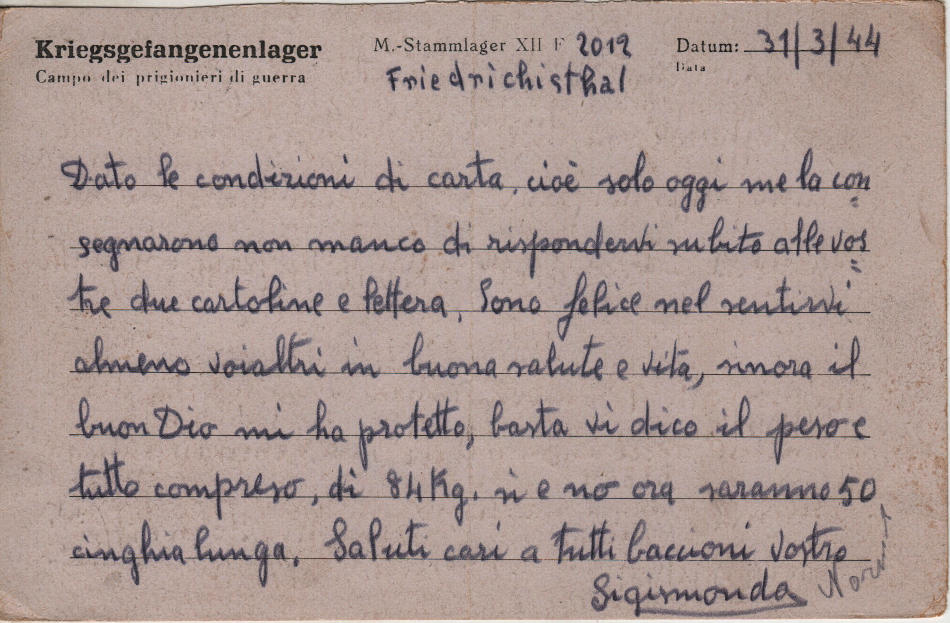 Kriegsgefangenenlager
Campo dei prigionieri di guerra
M.-Stammlager XII F 2012
Friedrichisthal
Datum: 31/3/44
Data
Dato le condizioni di carta, cioè solo oggi me la con
segnarono non manco di rispondervi subito alle vos
tre due cartoline e lettera. Sono felice nel sentirvi
almeno voialtri in buona salute e vita, sinora il
buon Dio mi ha protetto, basta vi dico il peso e
tutto compreso, di 84 Kg. si e no ora saranno 50
cinghia lunga. Saluti cari a tutti baccioni vostro
Sigismonda